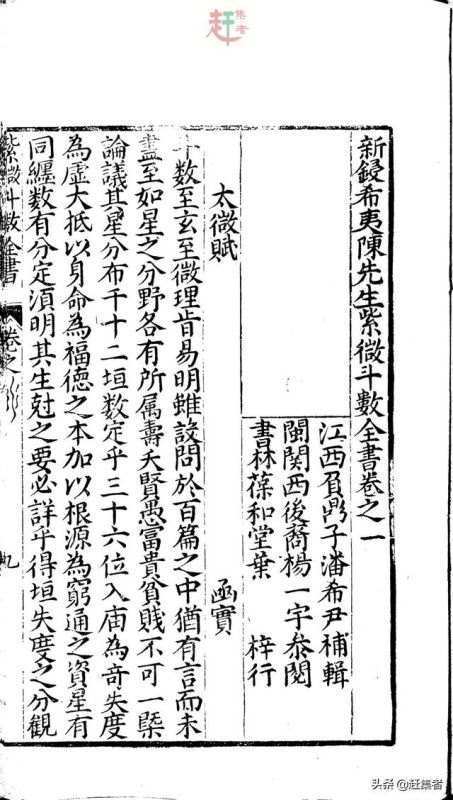 赶集者
新鋟希夷陳先生紫微斗數全書卷之一
江西負鼎子潘希尹補輯
閩関西後裔楊一宇叅閱
書林葆和堂葉 梓行
太微賦 函實
斗数至玄至微理旨易明雖設問於百篇之中猶有言而未
盡至如星之分野各有所属壽夭賢愚富貴貧賎不可一槩
論議其星分布十二垣数定乎三十六位入庙為奇失度
為虛大抵以身命為福德之本加以根源為窮通之資星有
同纏数有分定須明其生尅之要必詳乎得垣失度之分觀
紫微斗数全書 卷之 九
头条 @赶集者